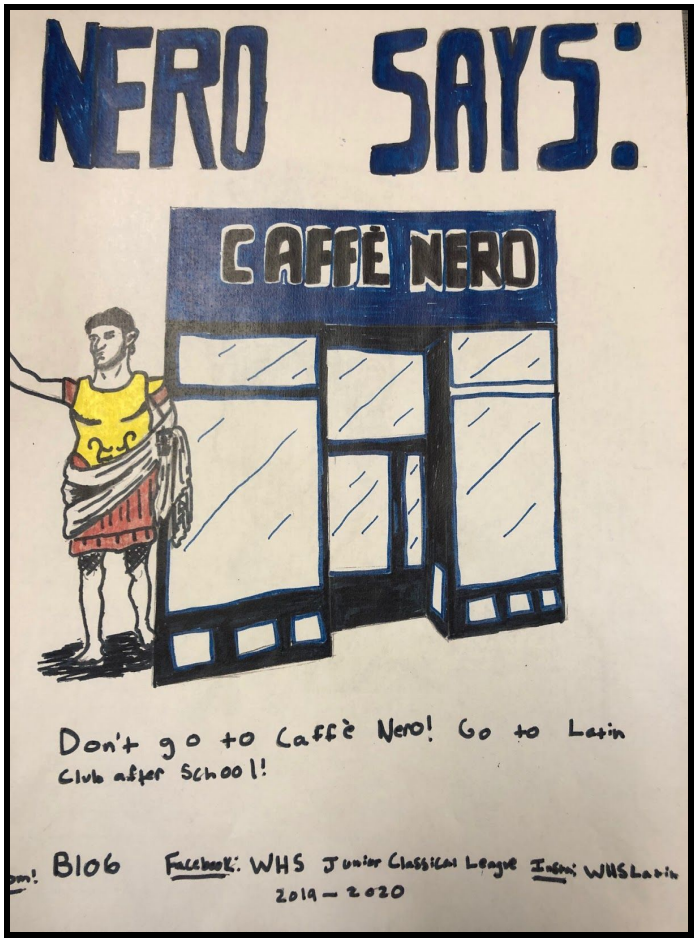 NERO SAYS:
CAFFÈ NERO
Don't go to Caffè Nero! Go to Latin
Club after School!
om! Blog Facebook: WHS Junior Classical League Insta: WHSLatin
2019-2020